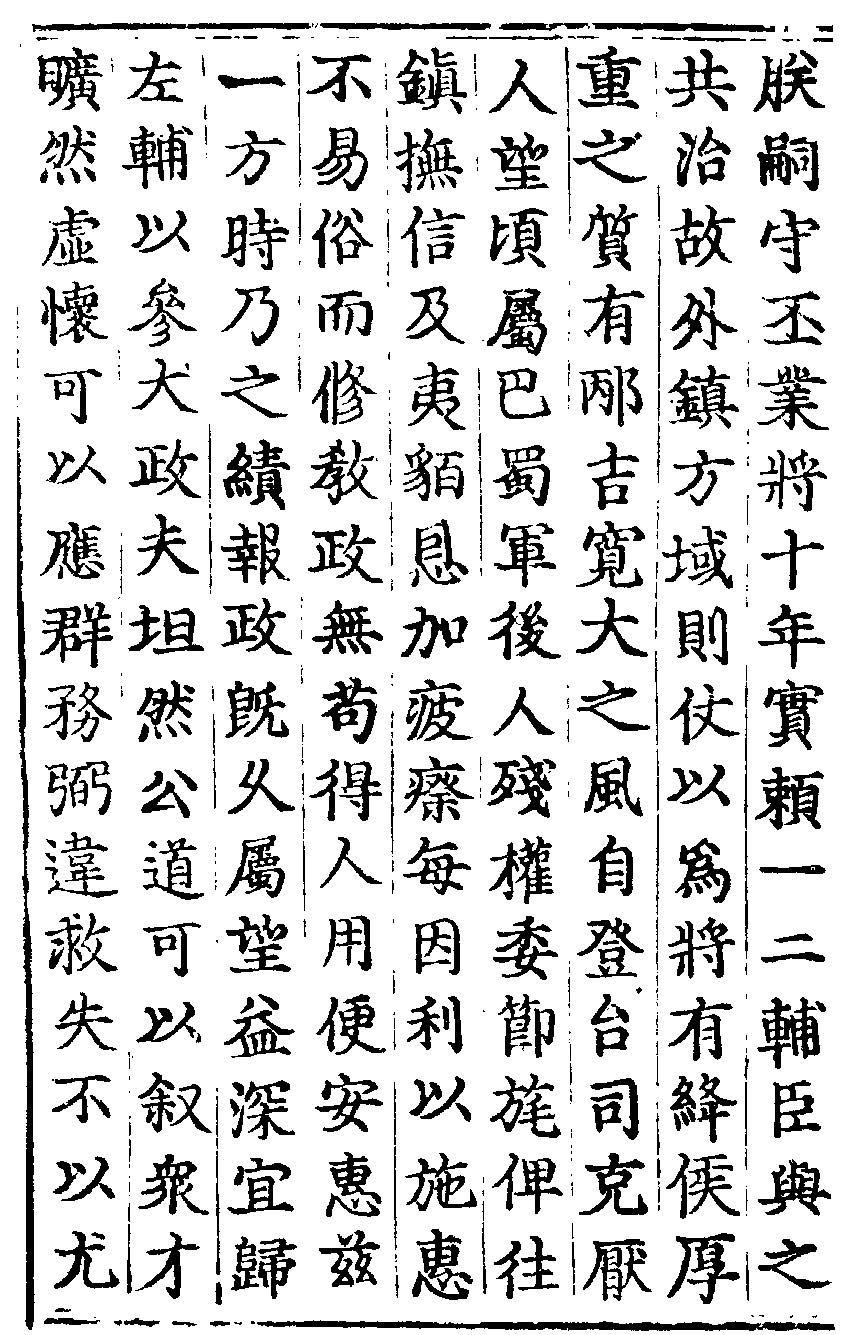 朕嗣守丕業將十年實賴一二輔臣與之
共治故外鎮方域則仗以爲將有絳侯厚
重之質有邴吉寬大之風自登台司克厭
人望頃屬巴蜀軍後人殘權委節旄俾往
鎮撫信及夷貊恩加疲瘵每因利以施惠
不易俗而修教政無苟得人用便安惠兹
一方時乃之績報政旣久屬望益深宜歸
左輔以參大政夫坦然公道可以叙衆才
曠然虛懷可以應群務弼違救失不以尤